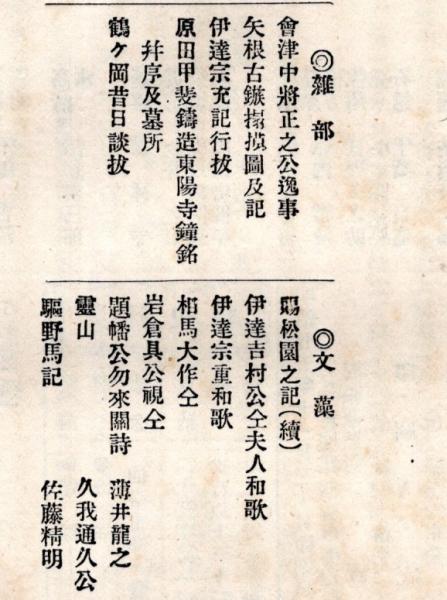 ◎雜部
會津中將正之公逸事
矢根古鏃搨摸圖及記
伊達宗充記行拔
原田甲斐鑄造東陽寺鐘銘
幷序及墓所
鶴ケ岡昔日談拔
◎文藻
賜松園之記(續)
伊達吉村公仝夫人和歌
伊達宗重和歌
相馬大作仝
岩倉具公視仝
題幡公勿來關詩 薄井龍之
靈山 久我通久公
驅野馬記 佐藤精明